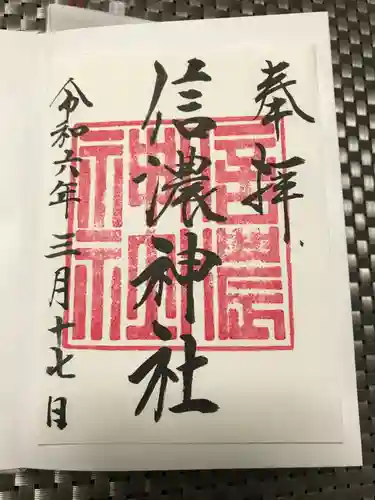 奉拝
信濃神社
令和六年三月十七日
信濃神社